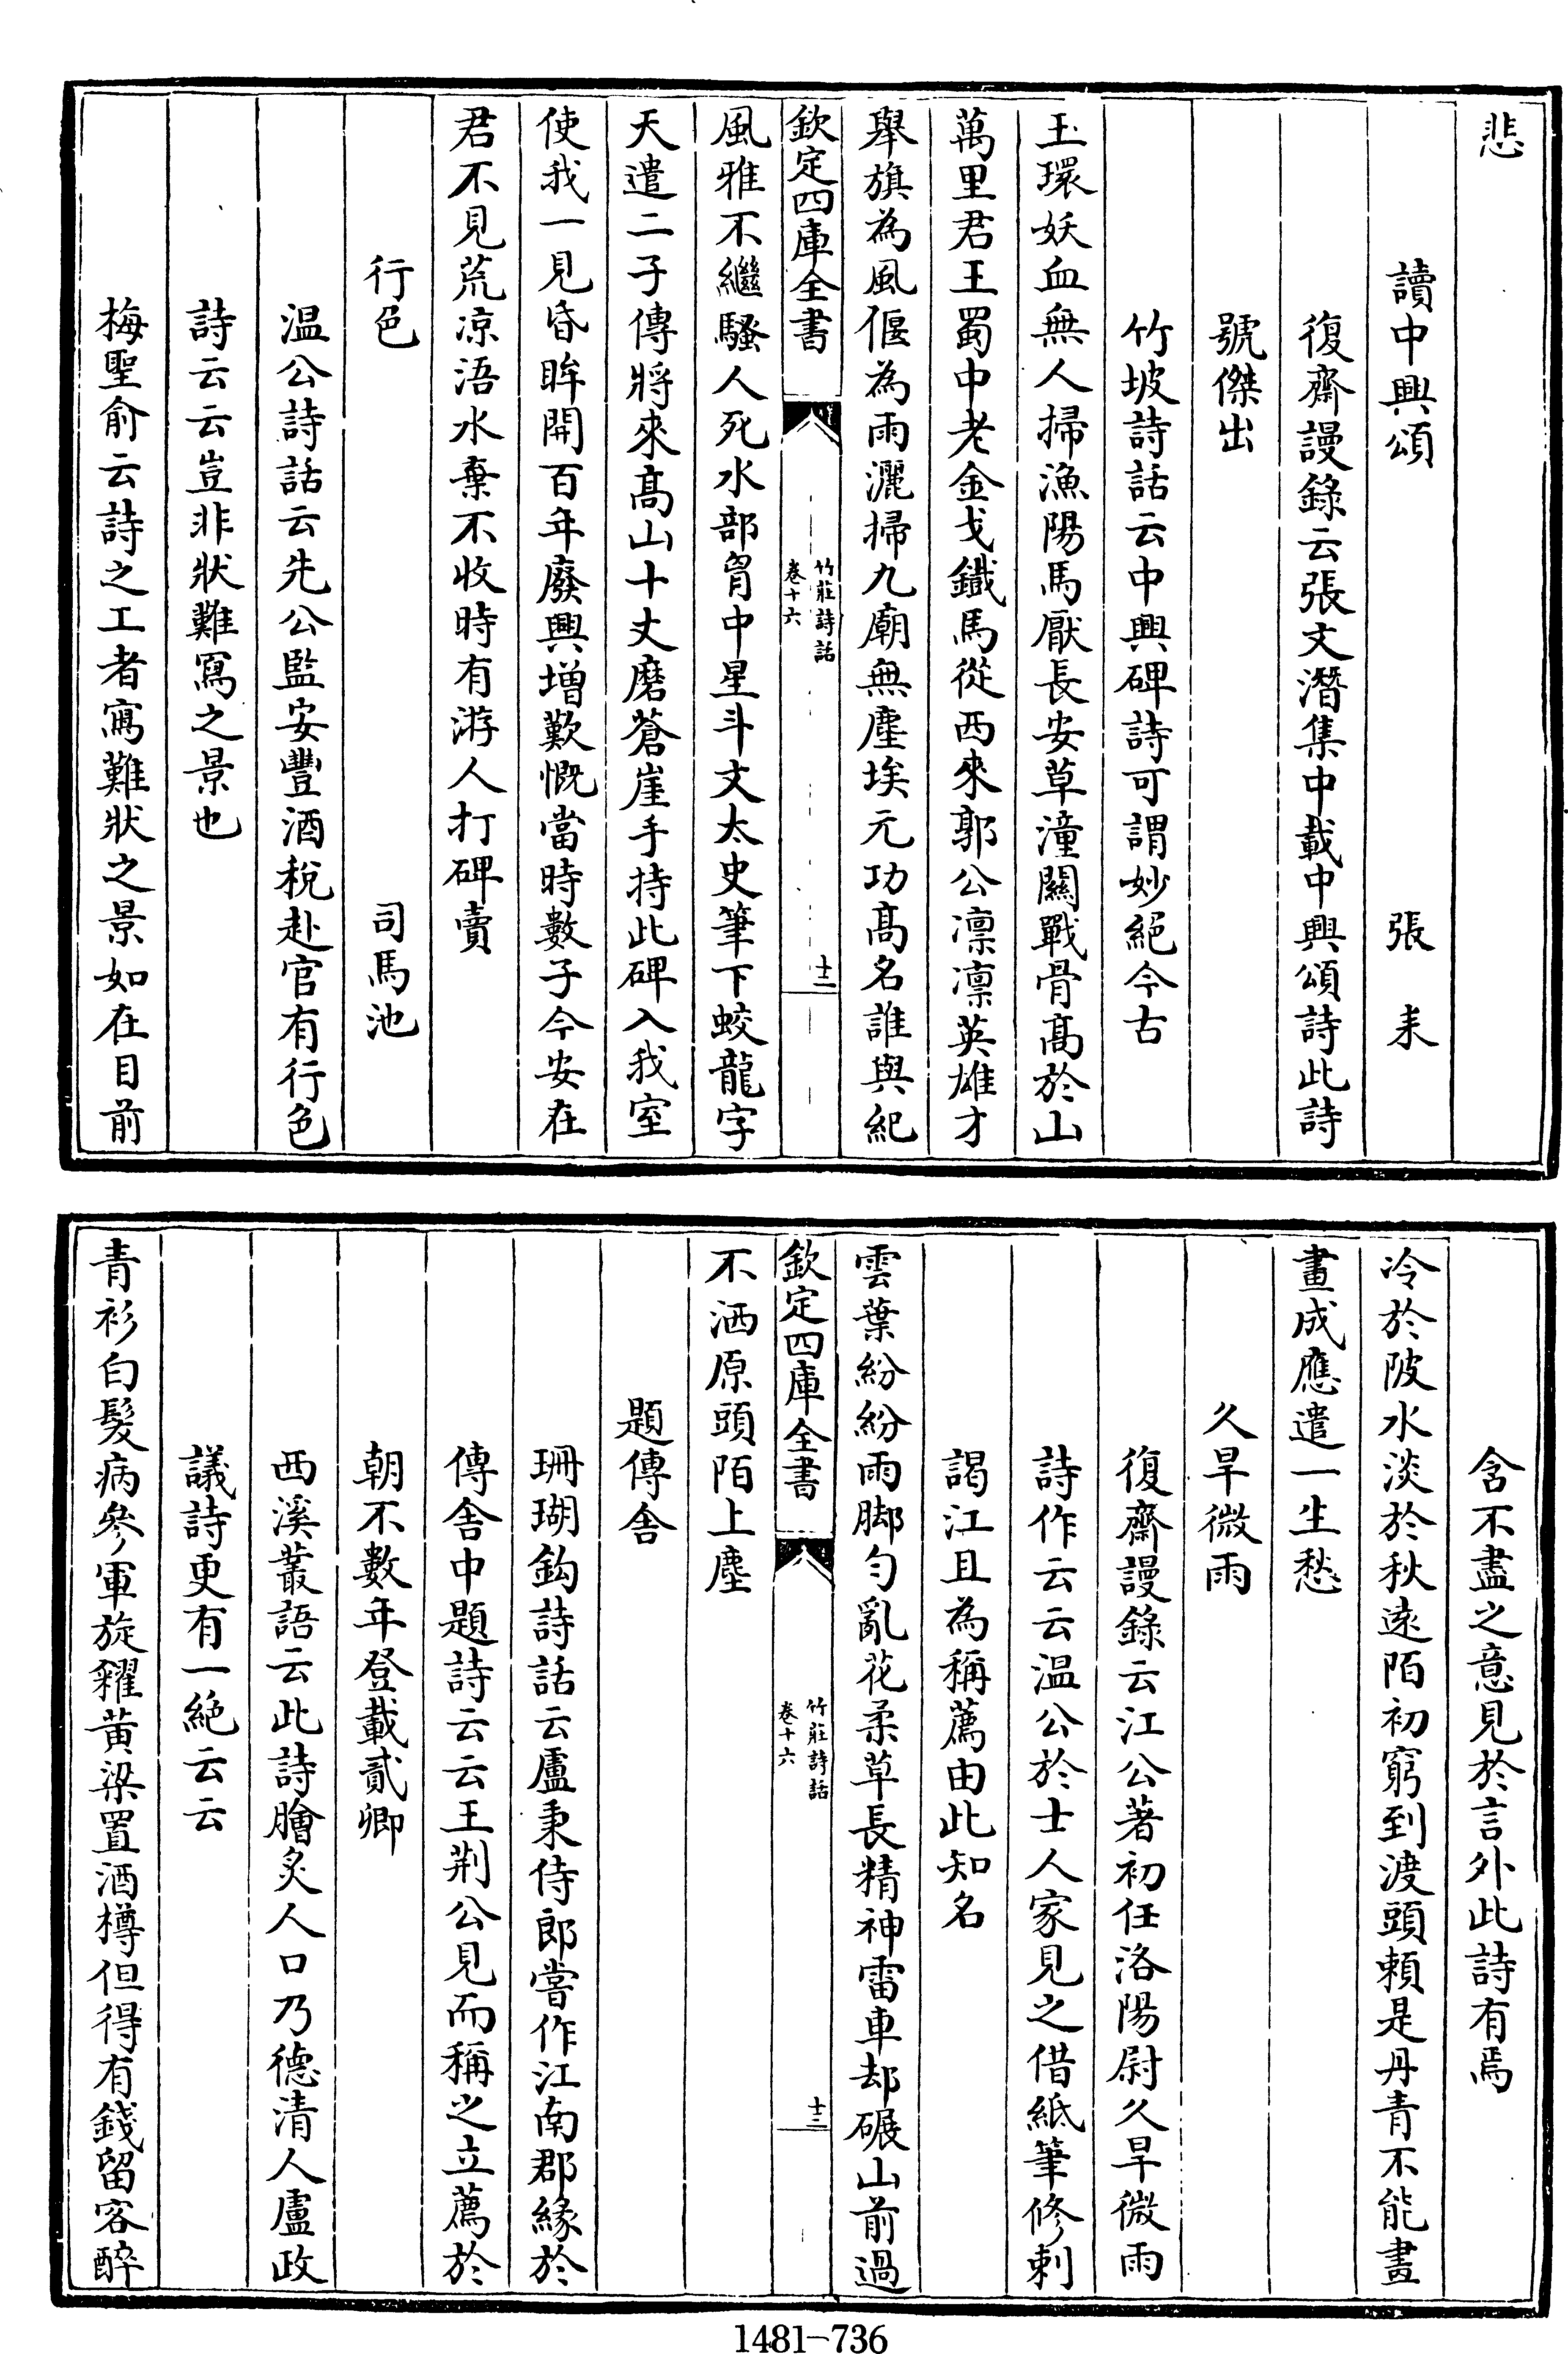 悲
讀中興頌　張耒
復齋謾錄云張文潛集中載中興頌詩此詩
號傑出
竹坡詩話云中興碑詩可謂妙絕今古
玉環妖血無人掃漁陽馬厭長安草潼關戰骨髙於山
萬里君王蜀中老金戈鐵馬從西來郭公凛凛英雄才
舉旗為風偃為雨灑掃九廟無塵埃元功髙名誰與紀
欽定四庫全書
竹莊詩話
卷十六
十二
風雅不繼騷人死水部胷中星斗文太史筆下蛟龍字
天遣二子傳將來髙山十丈磨蒼崖手持此碑入我室
使我一見昏眸開百年廢興增歎慨當時數子今安在
君不見荒凉浯水棄不收時有游人打碑賣
行色　司馬池
温公詩話云先公監安豐酒税赴官有行色
詩云云豈非狀難寫之景也
梅聖俞云詩之工者寫難狀之景如在目前
含不盡之意見於言外此詩有焉
冷於陂水淡於秋逺陌初窮到渡頭賴是丹青不能畫
畫成應遣一生愁
久旱微雨
復齋謾錄云江公著初任洛陽尉久旱微雨
詩作云云温公於士人家見之借紙筆修刺
謁江且為稱薦由此知名
雲葉紛紛雨脚勻亂花柔草長精神雷車却碾山前過
欽定四庫全書
竹莊詩話
卷十六
十三
不洒原頭陌上塵
題傳舍
珊瑚鈎詩話云盧秉侍郎嘗作江南郡緣於
傳舍中題詩云云王荆公見而稱之立薦於
朝不數年登載貳卿
西溪叢語云此詩膾炙人口乃德清人盧政
議詩更有一絶云云
青衫白髮病參軍旋糴黄粱置酒樽但得有錢留客醉
1481-736